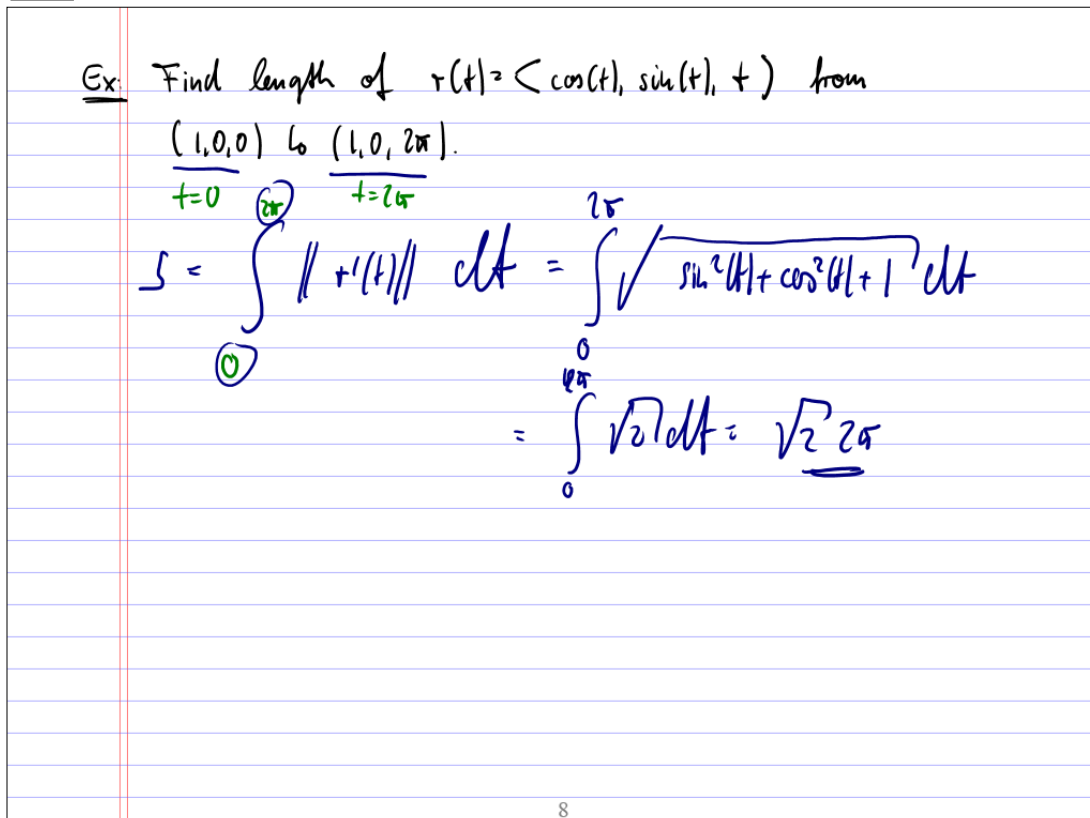 Ex: Find length of r(t) = < cos(t), sin(t), t ) from
(1,0,0) to (1,0, 2π).
t=0 t=2π
s = ∫₀^2π || r'(t) || dt = ∫₀^2π √(sin²(t) + cos²(t) + 1) dt
= ∫₀^2π √2 dt = √2 2π
8